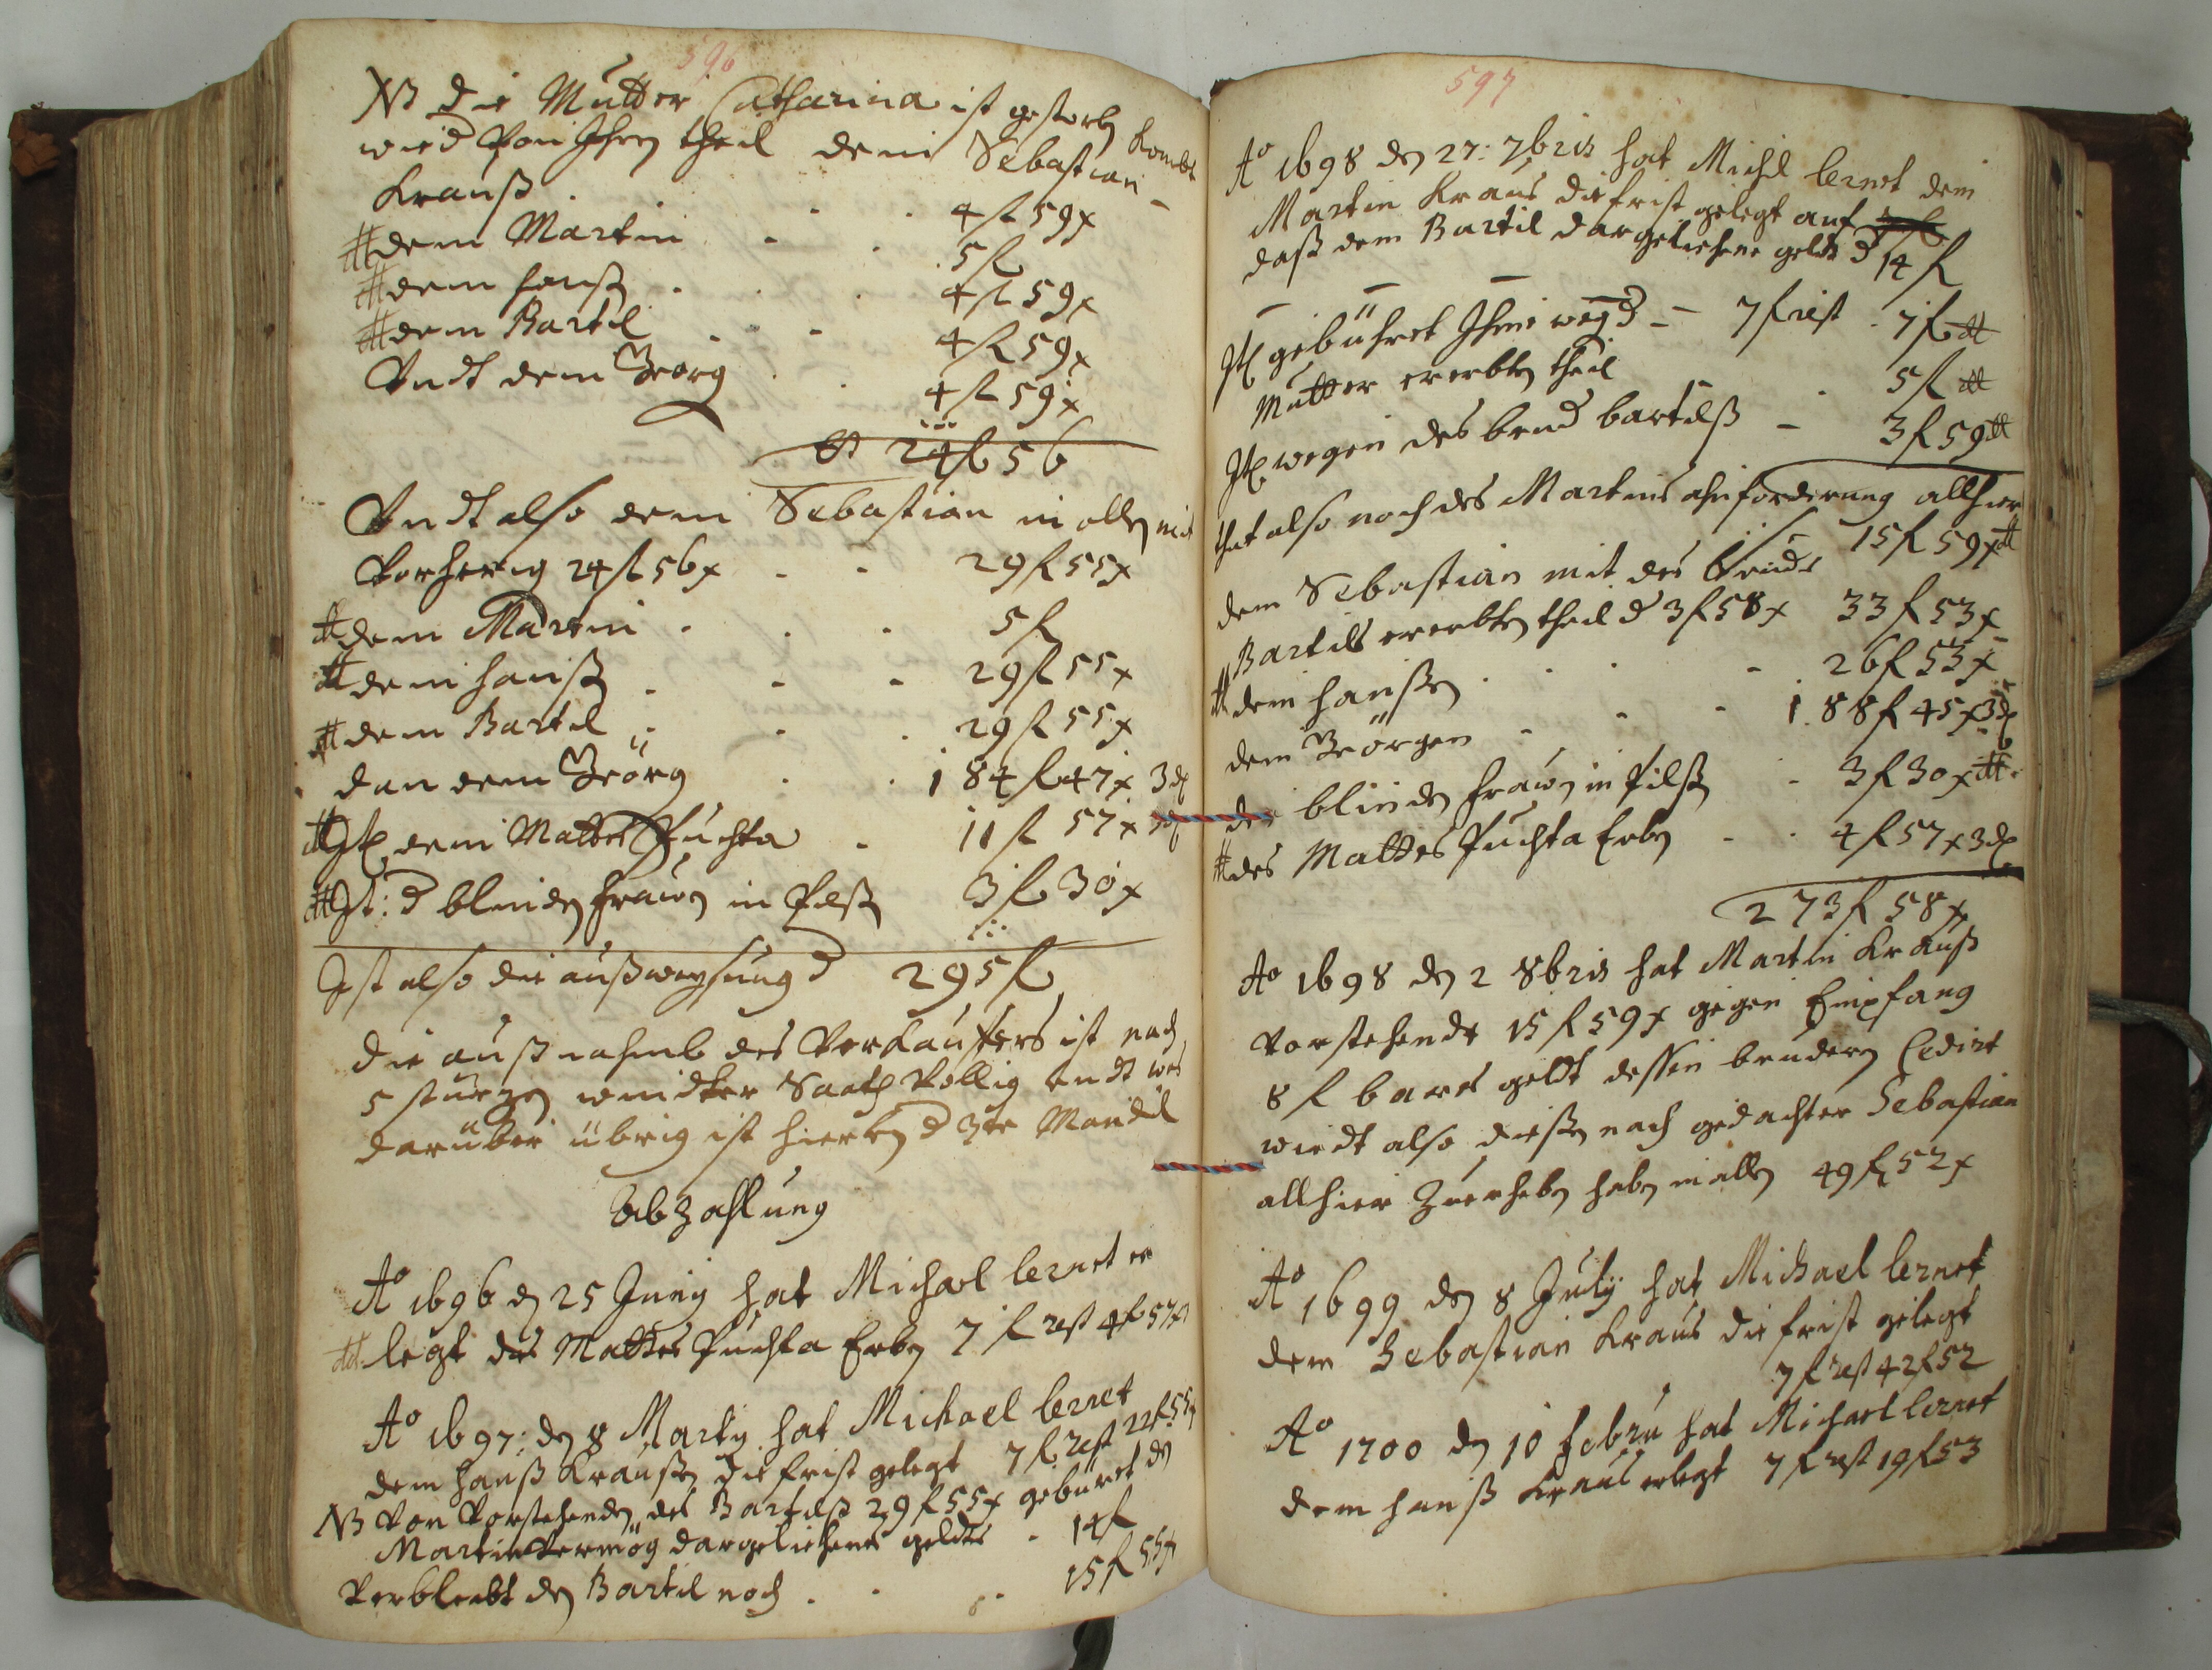 596
NB die Mutter Catharina ist gestorb. kombt
wird von Ihren theil dem Sebastian
Krauß . . . 4 fl 59 x
dem Martin . . 5 fl
dem Hanß . . 4 fl 59 x
dem Bartl . . 4 fl 59 x
Undt dem Georg . . 4 fl 59 x
24 fl 56
Undt also dem Sebastian in allen mit
vorherig 24 fl 56 x . . 29 fl 55 x
dem Martin . . . 5 fl
dem Hanß . . . 29 fl 55 x
dem Bartl . . . 29 fl 55 x
dan dem Geörg . . 184 fl 47 x 3 d
It. dem Mattes Puchta . 11 fl 57 x 3 d
It: d blinden frawen in Pilß 3 fl 30 x
Ist also die außweysung d 295 fl
die außnahmb des Verkauffers ist nach
5 stürzen windter Saath völlig undt was
darüber übrig ist hierbey d 3te Mandel
Abzahlung
Ao 1696 den 25 Juny hat Michael lernet er
legt des Mattes Puchta Erben 7 fl rest 4 fl 57 x
Ao 1697: den 8 Marty hat Michael lernet
dem Hanß Kraußen die frist gelegt 7 fl rest 22 fl 55 x
NB von vorstehenden des Bartlß 29 fl 55 x gebüret den
Martin vermög dargeliehenes geldes . 14 fl
verbleibt den Bartl noch . . . 15 fl 55 x
597
Ao 1698 den 27: 7bris hat Michl lernet dem
Martin Kraus die frist gelegt auf
daß dem Bartil dargeliehene geldt d 14 fl
7 fl rest . 7 fl
It gebühret Ihme weg d
Mutter ererbten theil . 5 fl
It wegen des brud bartilß - 3 fl 59
that also noch des Martins anforderung allhier
15 fl 59 x
dem Sebastian mit des bruds
Bartils ererbten theil d 3 fl 58 x 33 fl 53 x
dem Hanßen . . . 26 fl 53 x
dem Geörgen . . . 188 fl 45 x 3 d
der blinden frawen in Pilß - 3 fl 30 x
des Mattes Puchta Erben - . 4 fl 57 x 3 d
273 fl 58 x
Ao 1698 den 2 8bris hat Martin Krauß
vorstehende 15 fl 59 x gegen Empfang
8 fl bares geldt dessen brudern Cedirt
wirdt also dießen nach gedachter Sebastian
allhier Zuerheben haben in allen 49 fl 52 x
Ao 1699 den 8 July hat Michael lernet
dem Sebastian Kraus die frist gelegt
7 fl rest 42 fl 52
Ao 1700 den 10 Febru hat Michael lernet
dem Hanß Kraus erlegt 7 fl rest 19 fl 53